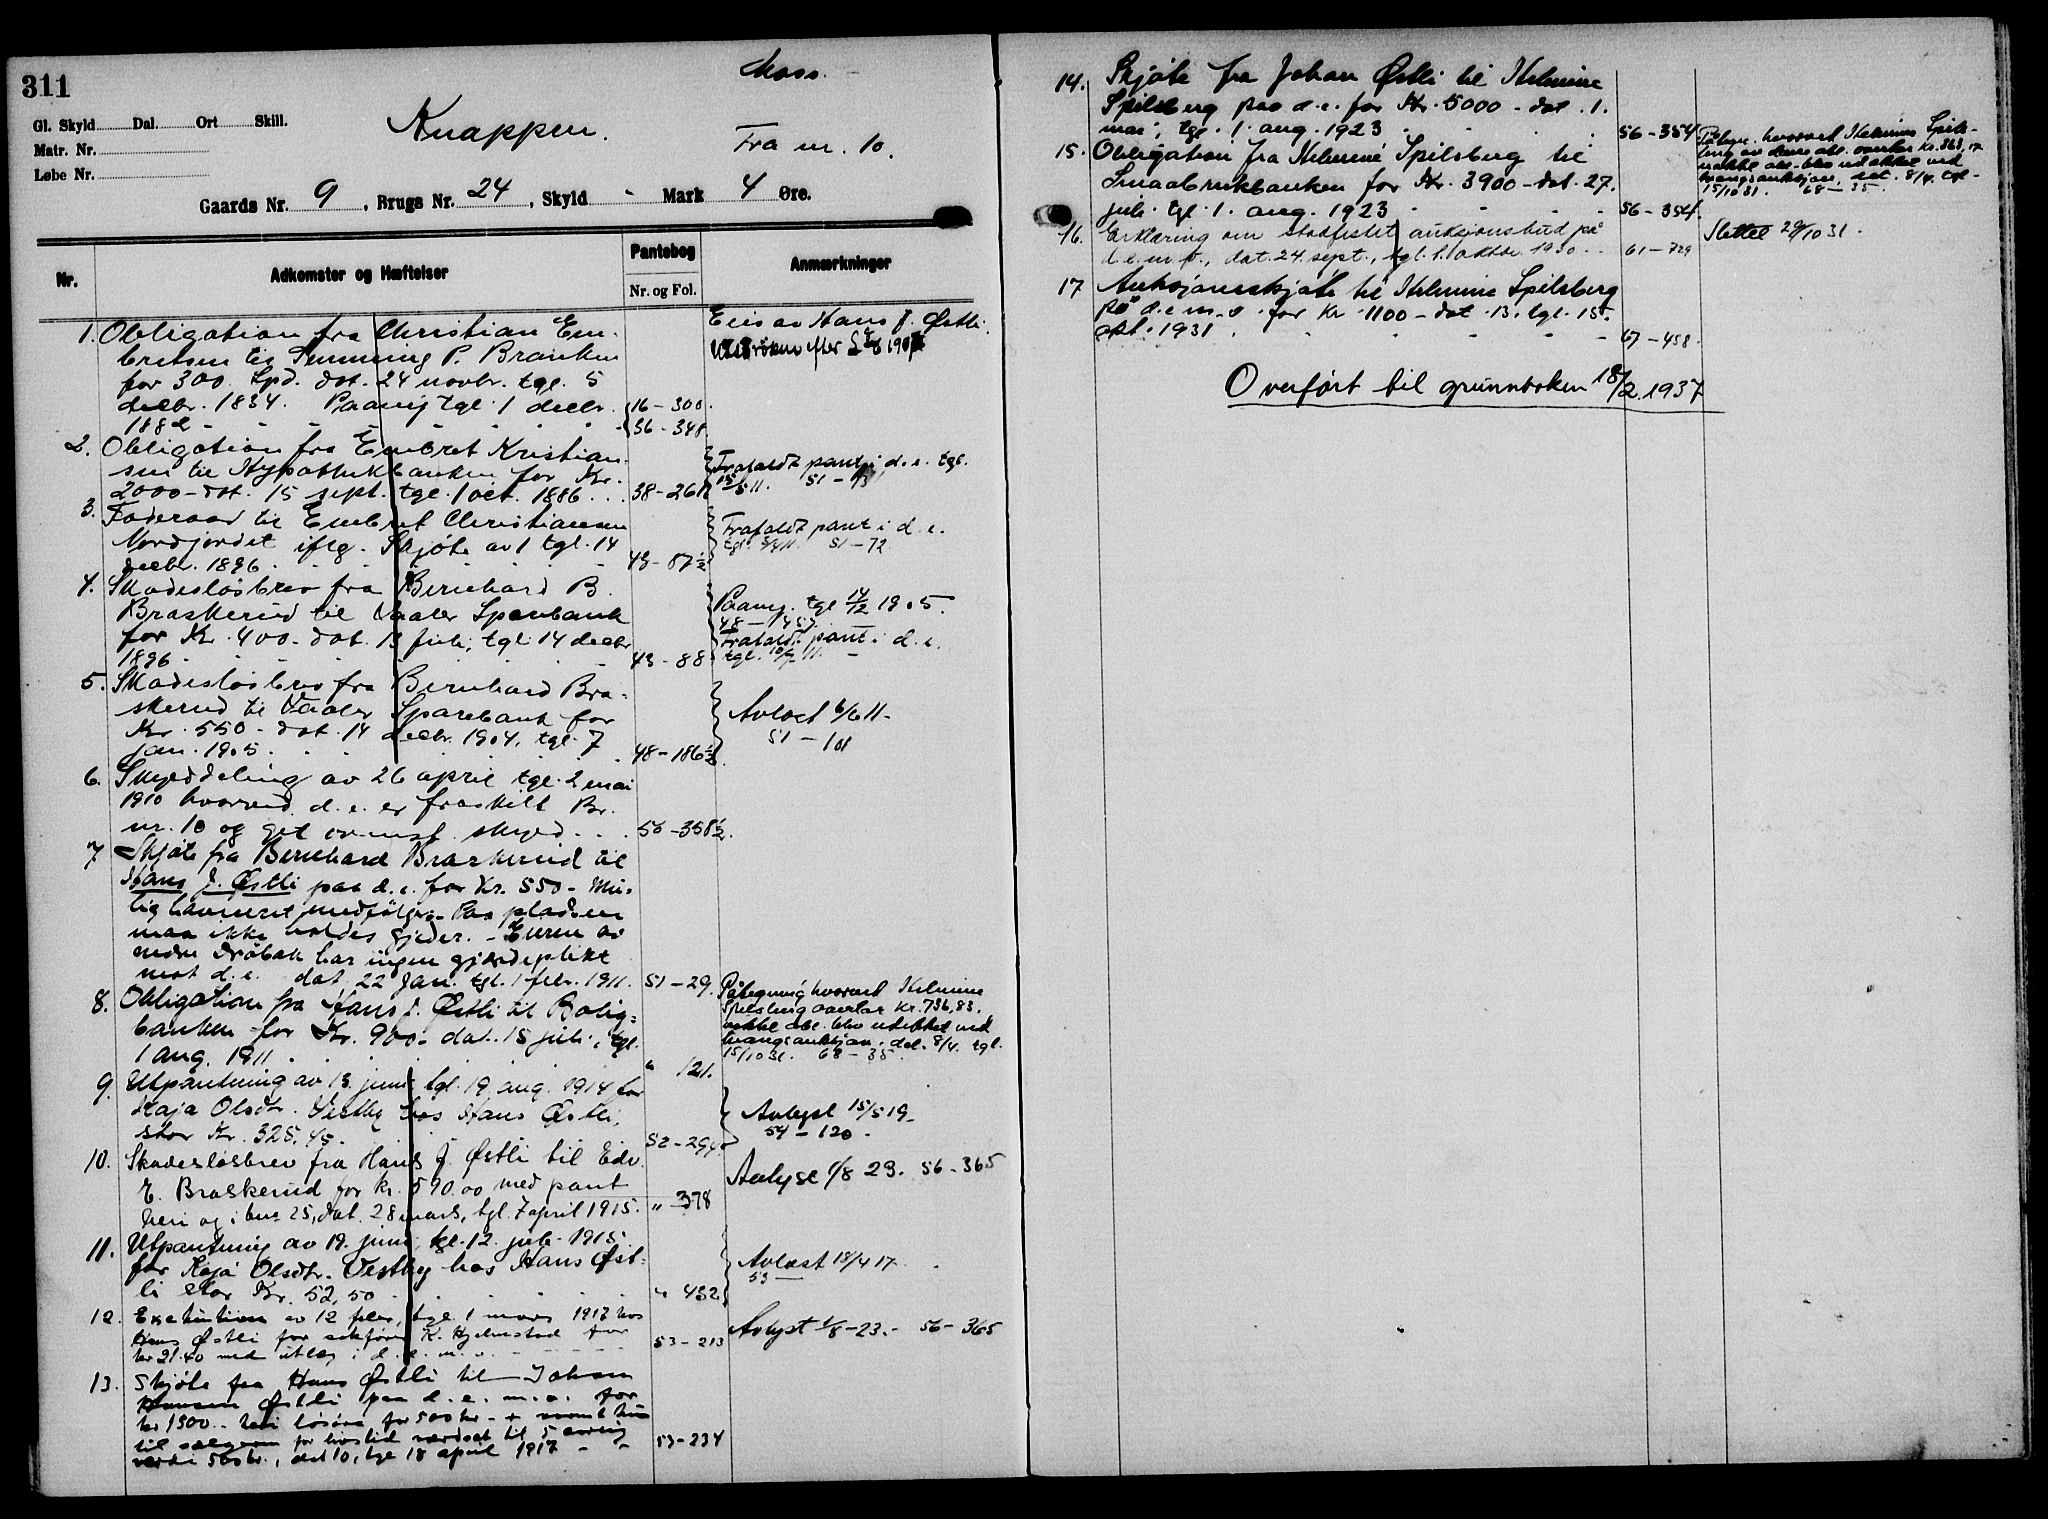 311
Moss.
Gl. Skyld Dal. Ort Skill.
Matr. Nr.
Løbe Nr.
Knappen.
Fra nr. 10.
Gaards Nr. 9, Brugs Nr. 24, Skyld - Mark 4 Øre.
Nr.
Adkomster og Hæftelser
Pantebog
Nr. og Fol.
Anmærkninger
1. Obligation fra Christian Em-
britsen til Flemming P. Brauken
for 300 Spd. dat. 24 novbr. tgl. 5
decbr. 1834. Paateg tgl. 1 decbr. 16-300.
1882 - - - - 36-348.
Eies av Hans J. Østli.
2. Obligation fra Embret Kristian-
sen til Hypothekbanken for Kr.
2000 - dat. 15 sept. tgl. 1 oct. 1886 . . . 38-261
Frafaldt pant i d. e. tgl.
3. Føderaad til Embret Christiansen
Nordjordet iflg. Skjøte av 1 tgl. 14
decbr. 1896 . . . 43-87½
Frafaldt pant i d. e.
51-72
4. Skadesløsbrev fra Bernhard B.
Braskerud til Vaaler Sparebank
for Kr. 400 - dat. 13 juli, tgl. 14 decbr
1896 . . . 43-88
Paateg. tgl 14/12 1905.
Frafaldt pant i d. e.
5. Skadesløsbrev fra Bernhard Bra-
skerud til Vaaler Sparebank for
Kr. 550 - dat. 14 decbr. 1904, tgl. 7
jan. 1905 . . . 48-186½
Avløst 6/6 11-
51-101
6. Skylddeling av 26 april tgl. 2 mai
1910 hvorved d. e. er fraskilt Br.
nr. 10 og git ovennst. skyld . . . 50-358½.
7 Skjøte fra Bernhard Braskerud til
Hans J. Østli paa d. e. for Kr. 550 - Mu-
lig havneret medfølger - Paa pladsen
maa ikke holdes gjeder. - Eieren av
nedre Drøbak har ingen gjærdeplikt
mot d. e. dat. 22 Jan. tgl. 1 febr. 1911. 51-29.
8. Obligation fra Hans J. Østli til Bolig-
banken for Kr. 900 - dat. 15 juli, tgl.
1 aug. 1911 . . " 121.
Påtegning hvorved Helmine
Spilsberg overtar Kr. 736,83,
hvilke obl. blev utlikket ved
tvangsauksjon. dat. 8/4. tgl.
15/10 31. 68-35.
9. Utpantning av 13. juni tgl. 19. aug. 1914 for
Kaja Olsdtr. Vestby hos Hans Østli,
stor Kr. 325,45. 52-294.
Avlyst 15/5 19-
54-120.
10. Skadesløsbrev fra Hans J. Østli til Edv.
E. Braskerud for kr. 590.00 med pant
heri og i bnr 25, dat. 28 mars, tgl. 7 april 1915. " -378
Avlyst 1/8 23. 56-365
11. Utpantning av 19. juni, tgl. 12. juli 1915
for Kaja Olsdtr. Vestby hos Hans Øst-
li stor Kr. 52,50 . " 432
Avløst 18/4 17
53 -
12. Exekution av 12 febr, tgl. 1 mars 1917 hos
Hans Østli for sakfører K. Hjelmstad for
kr 21.40 med utlæg i d. e. m. v. 53-213
Avlyst 1/8-23. - 56-365
13. Skjøte fra Hans Østli til Johan
Hansen Østli paa d. e. m. v. for
kr 1500 - heri løsøre for 500 kr -
til sælgeren for livstid værdsat til 5 aarlig
værdi 500 kr., dat 10, tgl 18 april 1917 - 53-234
14. Skjøte fra Johan Østli til Helmine
Spilsberg paa d. e. for Kr. 5000 - dat. 1.
mai, tgl. 1. aug. 1923 . . . 56-354.
15. Obligation fra Helmine Spilsberg til
Smaabrukbanken for Kr. 3900 - dat. 27.
juli. tgl. 1. aug. 1923 . . . 56-354.
Påtegn. hvorved Helmine Spils-
berg av denne obl. overtar Kr. 363,
hvilke obl. blev utlikket ved
tvangsauksjon. dat. 8/4. tgl.
15/10 31. 68-35.
16. Erklæring om stadfestet auksjonsbud på
d. e. m. v., dat. 24. sept., tgl. 1. oktbr. 1930 . . 61-729
Slettet 29/10 31.
17 Auksjonsskjøte til Helmine Spilsberg
på d. e. m. v. for Kr 1100 - dat. 13. tgl. 15.
okt. 1931 . . . 67-458.
Overført til grunnboken 18/2 1937